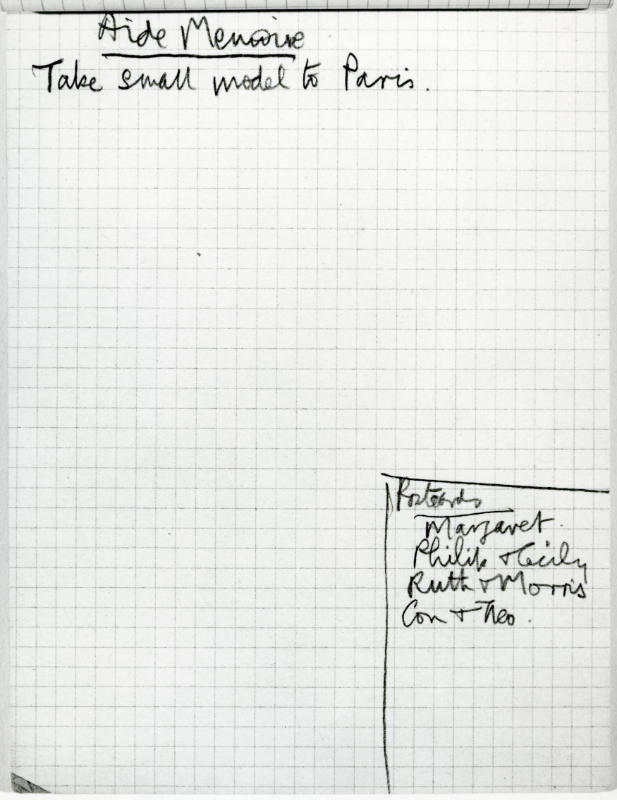 Aide Memoire
Take small model to Paris.
Postcards
Margaret.
Philip + Cecily
Ruth + Morris
Con + Theo.